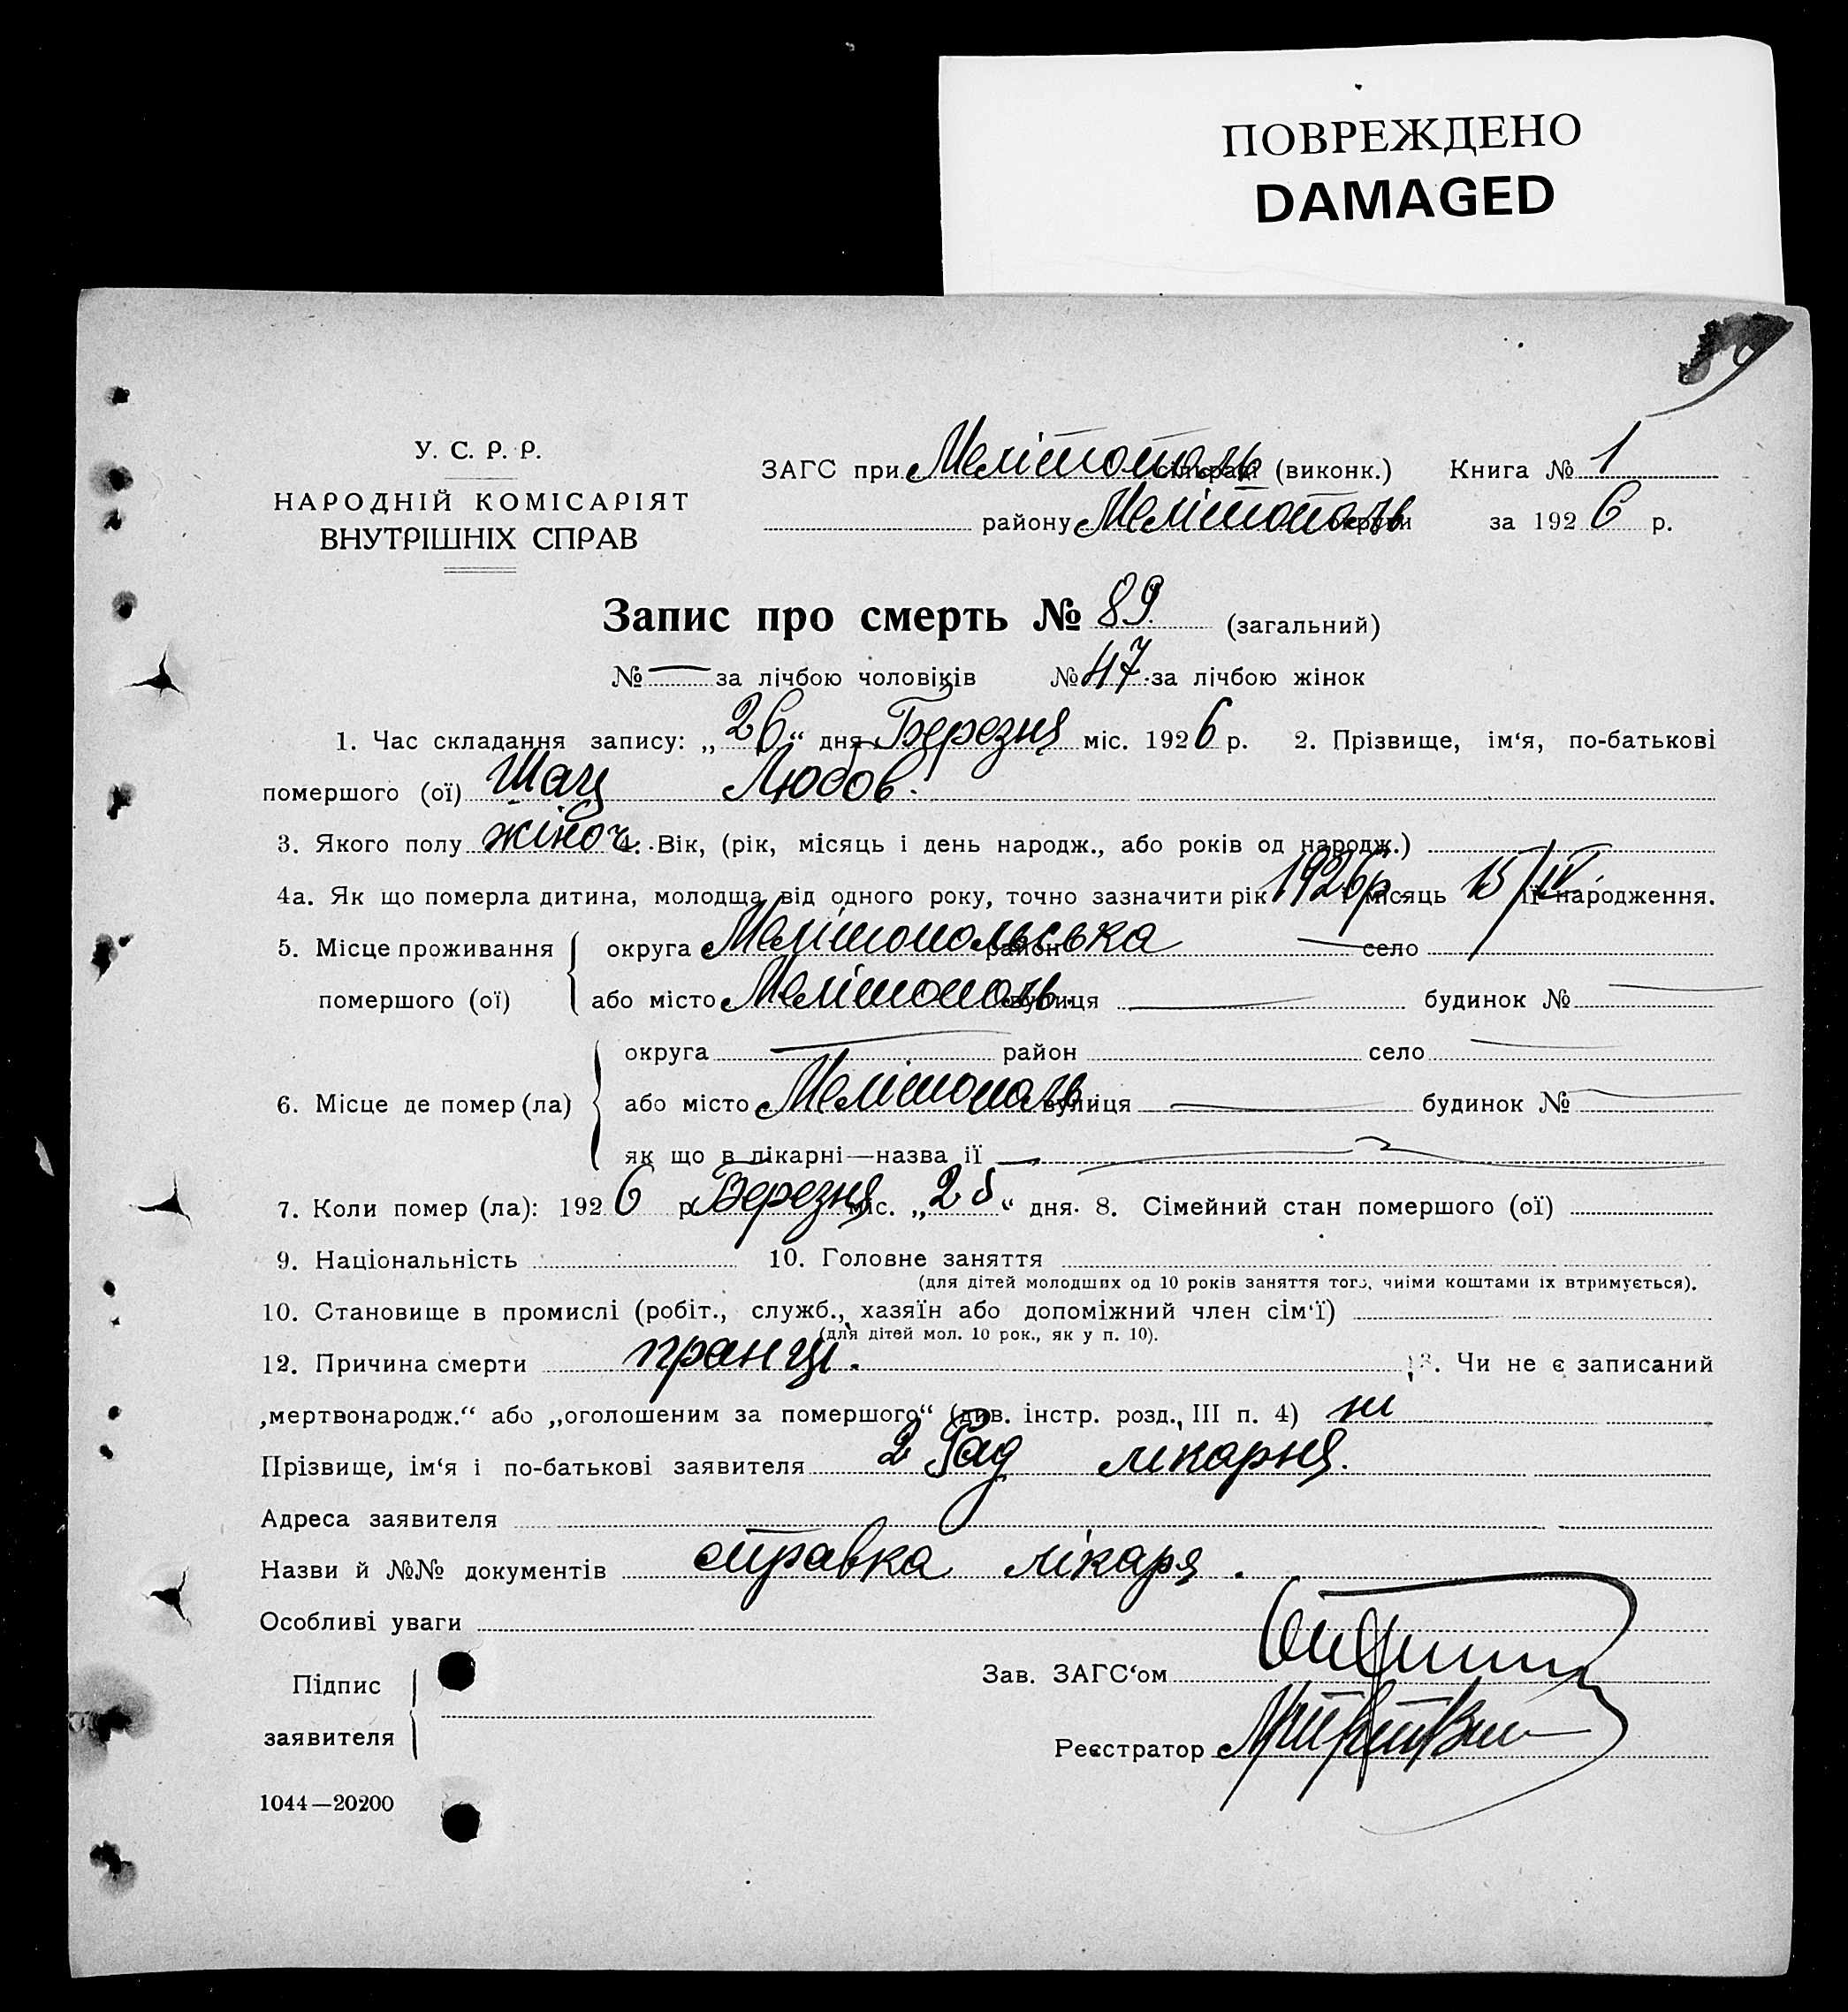 ПОВРЕЖДЕНО
DAMAGED
89
У. С. Р. Р.
НАРОДНІЙ КОМІСАРІЯТ
ВНУТРІШНІХ СПРАВ
ЗАГС при Мелітополь сільраді (виконк.) Книга № 1
району Мелітополь округи за 1926 р.
Запис про смерть № 89. (загальний)
№ — за лічбою чоловіків № 47 за лічбою жінок
1. Час складання запису: „26“ дня Березня міс. 1926 р. 2. Прізвище, ім‘я, по-батькові
помершого (ої) Шац Любов.
3. Якого полу жіноч. 4. Вік, (рік, місяць і день народж., або років од народж.)
4а. Як що померла дитина, молодща від одного року, точно зазначити рік 1926р. і місяць 15/IV її народження.
5. Місце проживання помершого (ої) { округа Мелітопольська район — село
або місто Мелітополь. вулиця — будинок № —
6. Місце де помер (ла) { округа — район село —
або місто Мелітополь вулиця — будинок № —
як що в лікарні—назва її —
7. Коли помер (ла): 1926 р. Березня міс. „25“ дня. 8. Сімейний стан помершого (ої)
9. Національність 10. Головне заняття
(для дітей молодших од 10 років заняття того, чиїми коштами їх втримується).
10. Становище в промислі (робіт., служб., хазяїн або допоміжний член сім‘ї)
(для дітей мол. 10 рок., як у п. 10).
12. Причина смерти пранці. 13. Чи не є записаний
„мертвонародж.“ або „оголошеним за помершого“ (див. інстр. розд., III п. 4) ні
Прізвище, ім‘я і по-батькові заявителя 2 Рад лікарня.
Адреса заявителя
Назви й №№ документів справка лікаря.
Особливі уваги
Підпис заявителя {
Зав. ЗАГС‘ом
Реєстратор
1044—20200